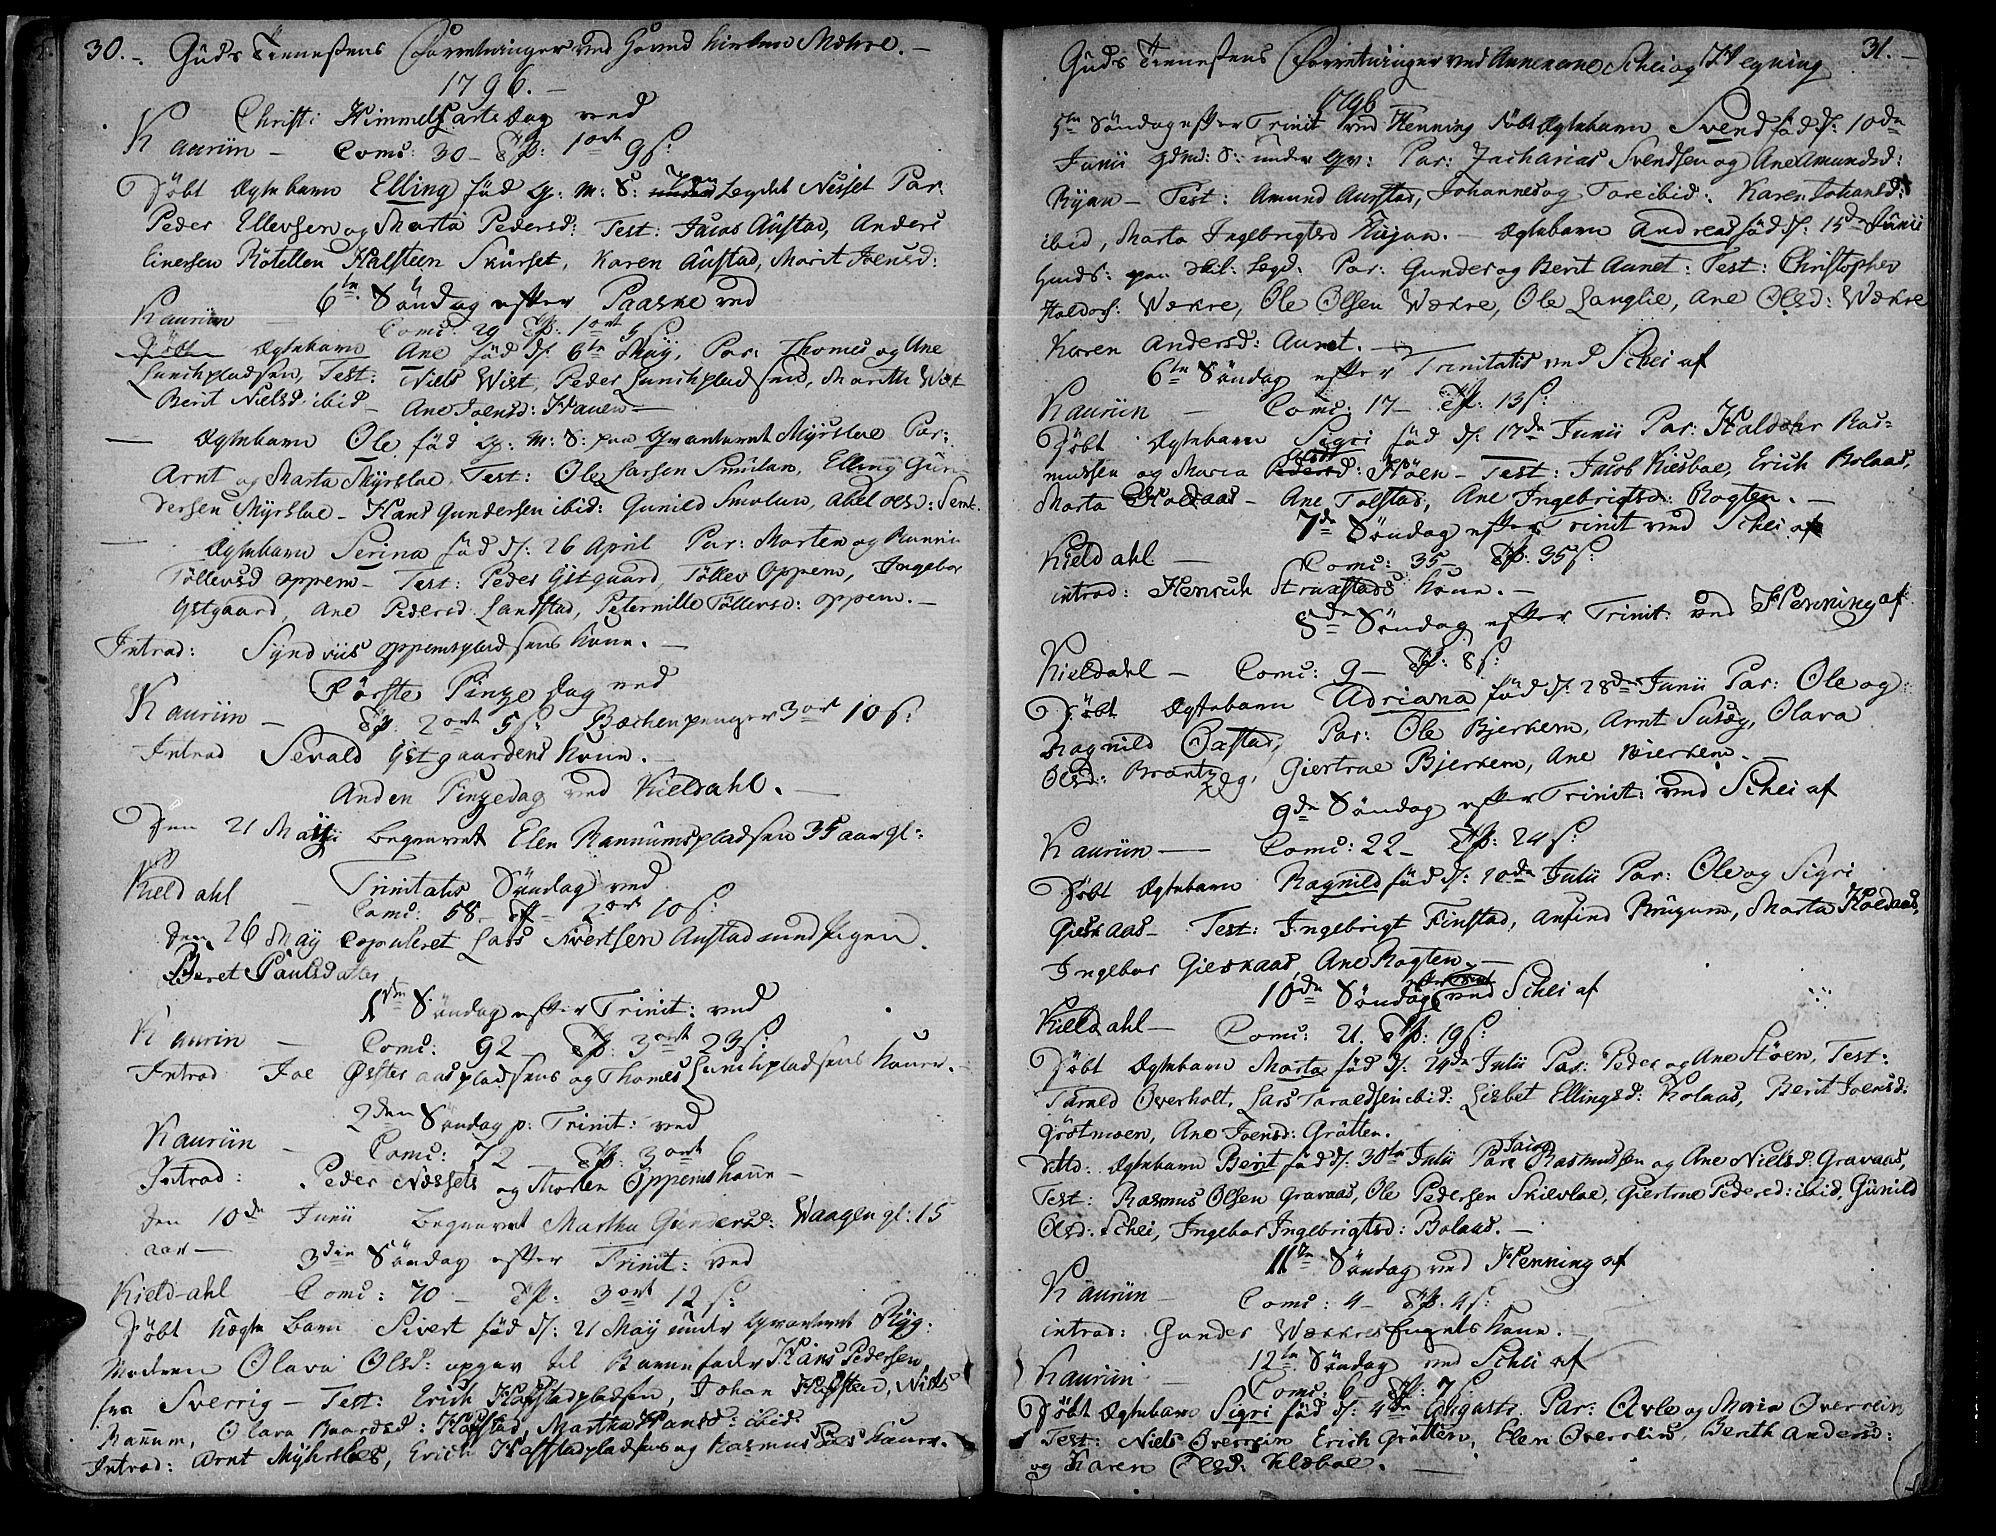 30. Guds Tienestens Forretninger ved Hoved Kirken Mære. —
1796. —
Christi Himmelfarts Dag ved
Kaurün — Comu: 30 — Tfl: 1 ort 9 s:
Döbt Ægtebarn Elling föd q. m. S: Legdet Nesset Par.
Peder Ellevsen og Marta Pedersd: Test: Austad, Anders
Einersen Rötellen Halsteen Skurset, Karen Austad, Marit Joensd:
6te Söndag efter Paaske ved
Kaurün — Comu: 29 Tfl: 1 ort s
Döbt Ægtebarn Ane föd d: 6te Maÿ, Par: Thomes og Ane
Lunchpladsen, Test: Niels Wist, Peder Lunchpladsen, Mareth Wist
Berit Nielsd ibid — Ane Joensd: Hauen —
— Ægtebarn Ole föd q. m: S: paa Qvarteret Myrslae Par:
Arnt og Marta Myrslae Test: Ole Larsen Smülan, Elling Gun
dersen Myrslae — Hans Gundersen ibid: Gunild Smolan, Abel Olsd:
— Ægtebarn Serina föd d: 26 April Par: Morten og
Töllevsd Oppem — Test: Peder Ystgaard, Töllev Oppem, Ingebor
Ystgaard, Ane Pedersd Landstad, Peternille Töllevsd: Oppem. —
Introd: Syndviis Oppemspladsens kone. —
Förste Pinze Dag ved
Kaurün — Tfl. 2 ort 5 s: Bechenpenger 3 ort 10 s:
Introd Sevald Ystgaardens kone. —
Anden Pinzedag ved Kieldahl. —
Den 21 Maÿ begravet Elen Rannumspladsen 35 aar gl:
Trinitatis Söndag ved
Kieldahl — Comu: 58 — Tfl — 2 ort 10 s:
Den 26 Maÿ Copuleret Lars Sivertsen Austad med Pigen
Beret Paulsdatter
1ste Söndag efter Trinit: ved
Kaurin — Comu: 92 — Tfl: 3 ort 23 s:
Introd Joe Österaaspladsens og Thomes Lunchpladsens koner. —
2den Söndag p: Trinit: ved
Kaurün — Comu: 72 — Tfl: 3 ort 6
Introd: Peder Nessets og Morten Oppems kone —
Den 10de Junii begravet Martha Gundersd: Waagen gl: 15
aar —
3die Söndag efter Trinit: ved
Kieldahl — Comu: 70 — Tfl: 3 ort 12 s:
Döbt Uægte Barn Sivert föd d: 21 Maÿ under Qvarteret Rÿg:
Moderen Olava Olsd: opgav til Barnefader Hans Pedersen
fra Sverrig — Test: Erich Hafstadpladsen, Johan Hafstad, Niels
Rannum, Olara Baardsd: Hafstad, Martha Hansd: ibid.
Introd: Arnt Myhrslaes, Erich Hafstadpladsens og Rasmus koner. —
Guds Tienestens Forretninger ved Annexerne Schei og Hegning 31. —
1796
5te Söndag efter Trinit ved Henning Döbt Ægtebarn Svend föd d: 10de
Junii gdmd: S: under Qv: Par: Zacharias Svendsen og Ane Amundsd:
Ryan — Test: Amund Aurstad, Johannes og Tore ibid: Karen Johansd:
ibid, Marta Ingebrigtsd Ryan. — Ægtebarn Andreas föd d: 15de Junii
Hmds: paa Legd: Par: Gunder og Berit Aunet: Test: Christopher
Haldors: Wækre, Ole Olsen Wækre, Ole Langlie, Ane Olsd: Wækre
Karen Andersd: Aunet. —
6te Söndag efter Trinitatis ved Schei af
Kaurün — Comu: 17 — Tfl: 13 s:
Döbt Ægtebarn Sigri föd d: 17de Junii Par: Haldohr Ras-
mussen og Maria Stöen — Test: Jacob Kiesbae, Erich Bolaas,
Marta Koldaas — Ane Tolstad, Ane Ingebrigtsd: Rogten. —
7de Söndag efter Trinit ved Schei af
Kieldahl — Comu: 35 — Tfl: 35 s:
introd: Henrich Straxstads kone. —
8de Söndag efter Trinit: ved Henning af
Kieldahl — Comu: 9 — Tfl: 8 s:
Döbt Ægtebarn Adriana föd d: 28de Junii Par: Ole og
Ragnild Oxstad, Par: Ole Bjerkem, Arnt Suseg, Olava
Olsd: Brantzeg, Giertrue Bjerkem, Ane Bierkem. —
9de Söndag efter Trinit: ved Schei af
Kaurün — Comu: 22 — Tfl: 24 s:
Döbt Ægtebarn Ragnild föd d: 10de Julii Par: Ole og Sigri
Gieskaas — Test: Ingebrigt Finstad, Anfind Brugum, Marta Koldaas,
Ingebor Gieskaas, Ane Rogten. —
10de Söndag ved Schei af
Kieldahl — Comu: 21. Tfl: 19 s:
Döbt Ægtebarn Marta föd d: 24de Julii Par: Peder og Ane Stöen, Test:
Tarald Overholt, Lars Taraldsen ibid: Lisbet Ellingsd: Kolaas, Berit Joensd:
Gröstmoen, Ane Joensd: Gratten.
ditto: Ægtebarn Berit föd d: 30te Julii Par Jacob Rasmussen og Ane Nielsd: Gravaas,
Test: Rasmus Olsen Gravaas, Ole Pedersen Skievlae, Giertrue Pedersd: ibid, Gunild
Olsd: Schei, Ingebor Ingebrigtsd: Bolaas. —
11te Söndag ved Henning af
Kaurün — Comu: 4 — Tfl: 4 s:
introd: Gunder Wækres Engets kone. —
12te Söndag ved Schei af
Kaurün — Comu: 6 Tfl: 7 s:
Döbt Ægtebarn Sigri föd d: 4de Augusti Par: Arle og Maria Overrein
Test: Niels Overrein Erich Gratten, Elen Overrein, Berith Andersd:
og Karen Olsd: Klæbae. —